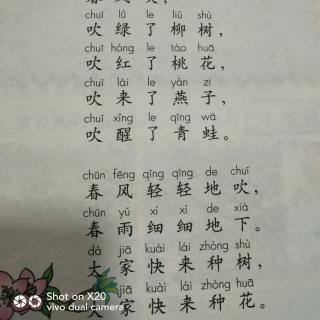 chuī lǜ le liǔ shù
吹绿了柳树，
chuī hóng le táo huā
吹红了桃花，
chuī lái le yàn zi
吹来了燕子，
chuī xǐng le qīng wā
吹醒了青蛙。
chūn fēng qīng qīng de chuī
春风轻轻地吹，
chūn yǔ xì xì de xià
春雨细细地下。
dà jiā kuài lái zhòng shù
大家快来种树，
jiā kuài lái zhòng huā
家快来种花。
Shot on X20
vivo dual camera